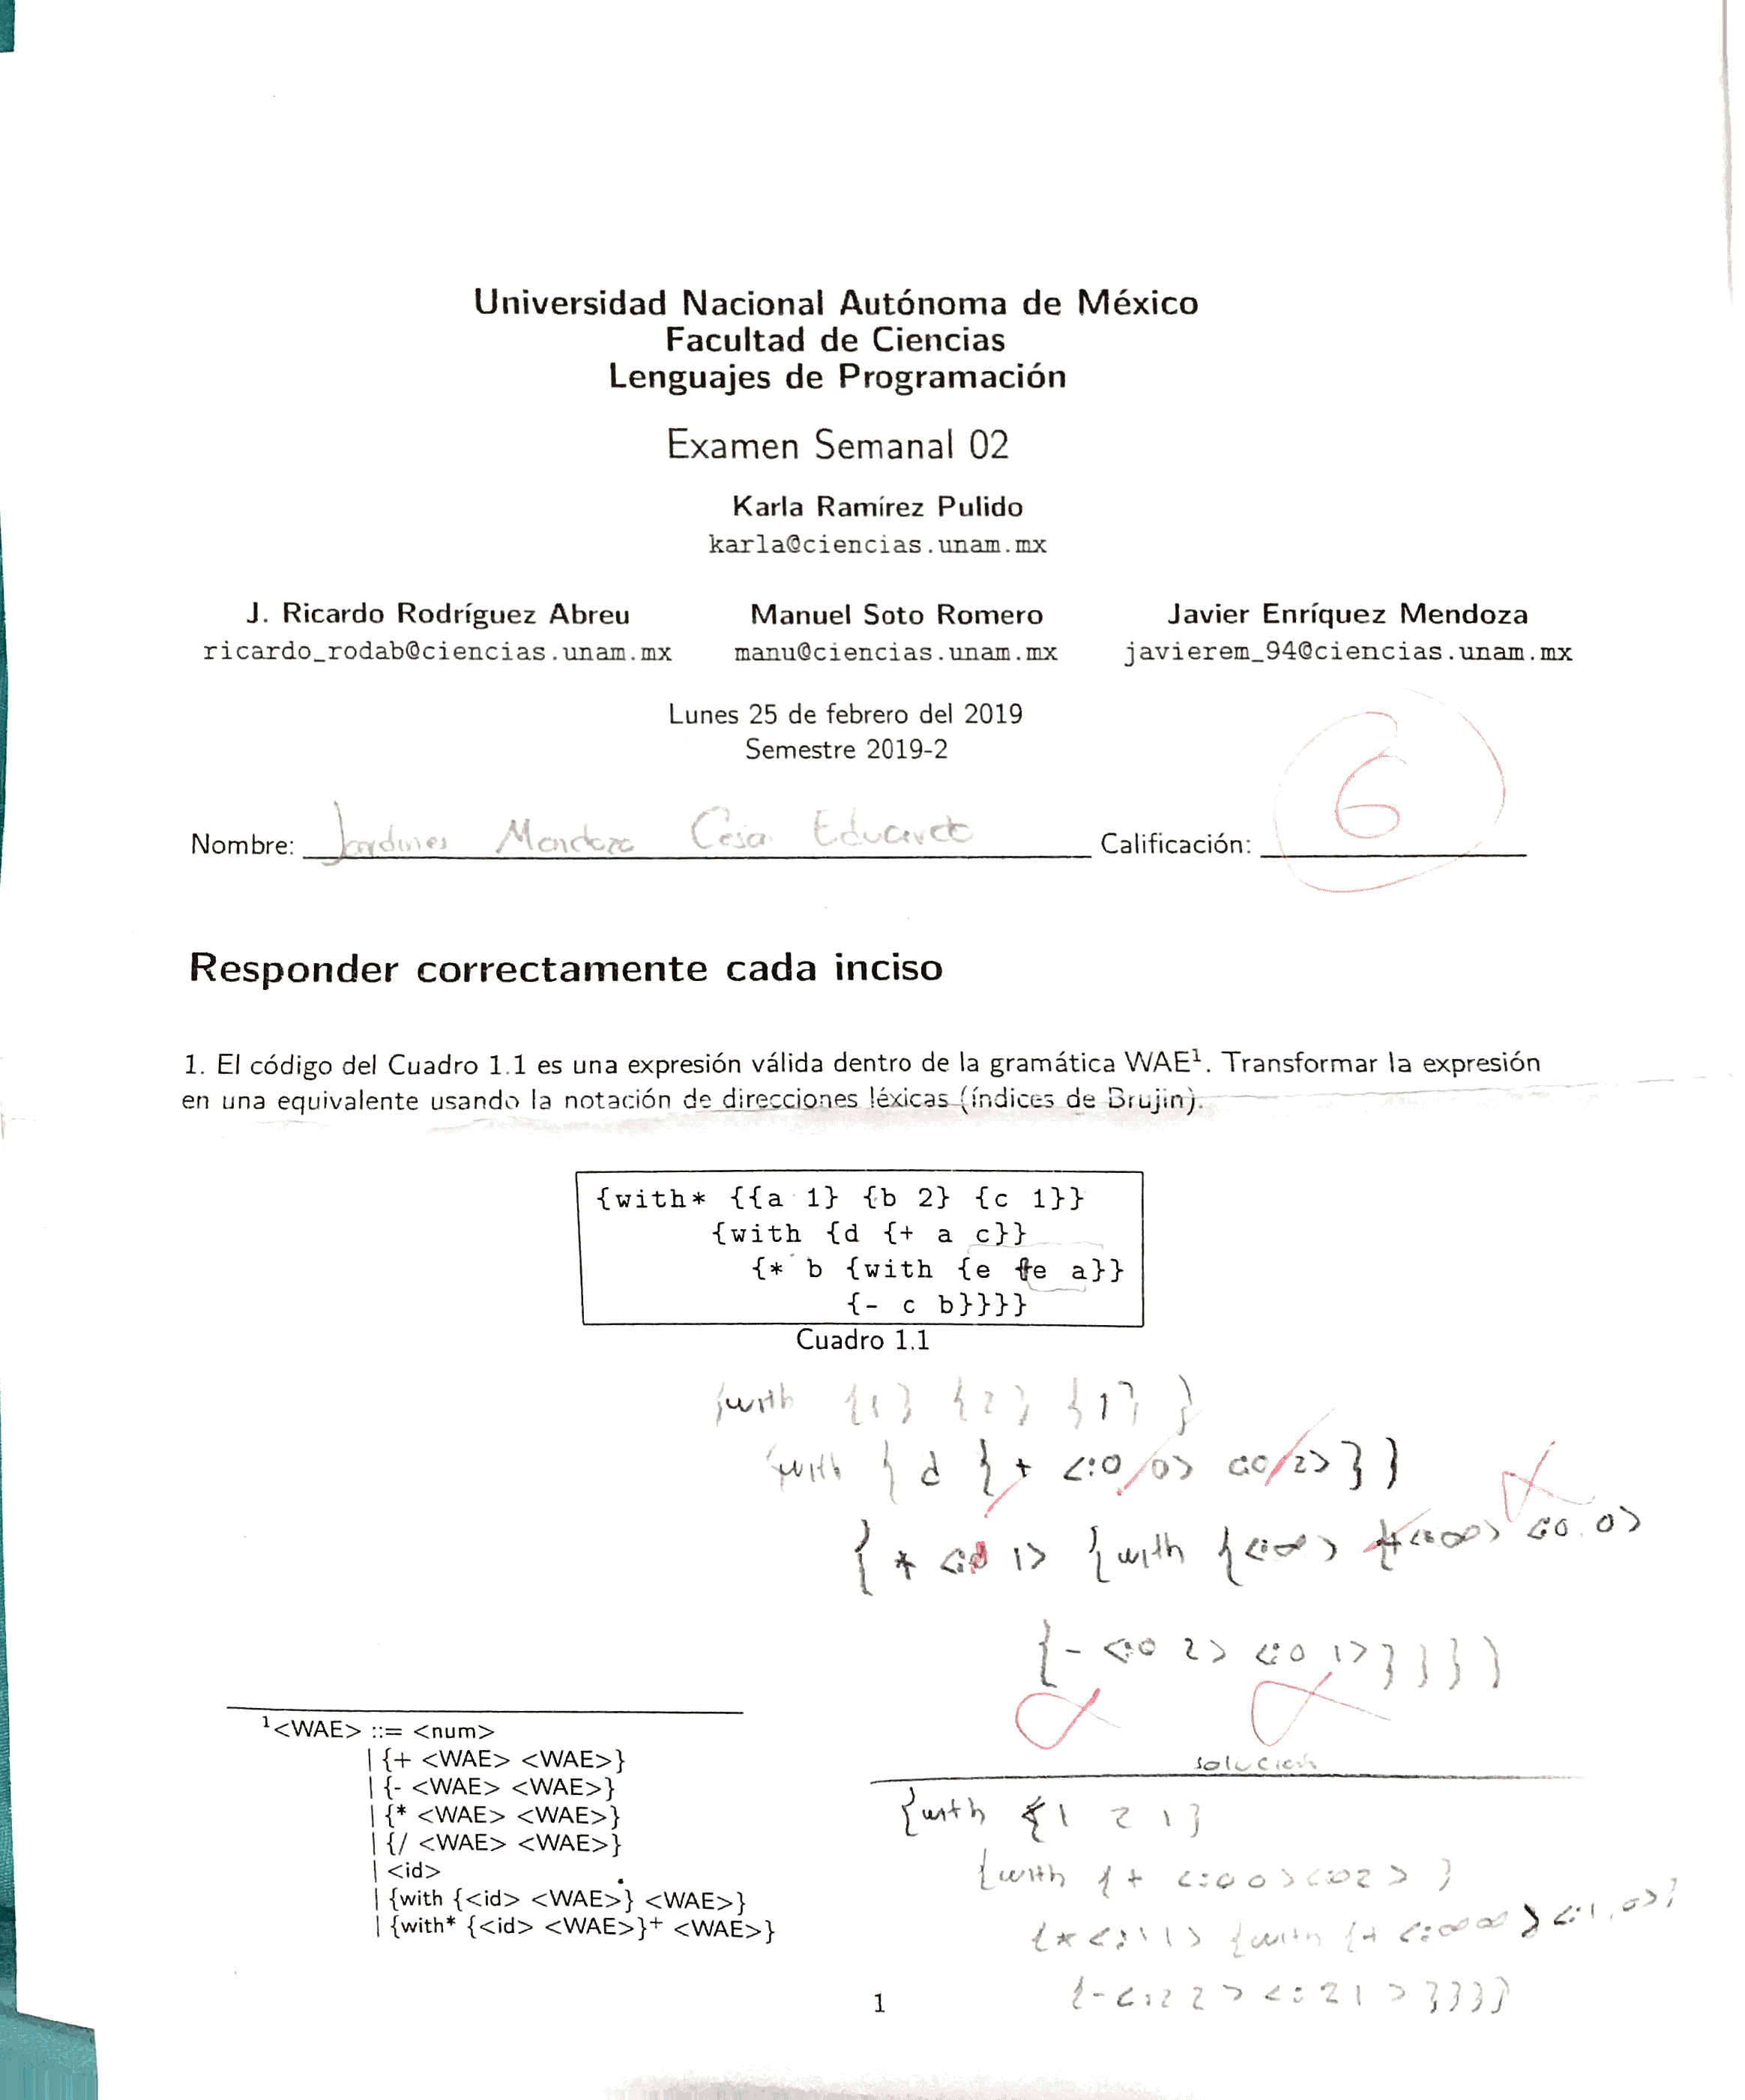 Universidad Nacional Autónoma de México
Facultad de Ciencias
Lenguajes de Programación
Examen Semanal 02
Karla Ramírez Pulido
karla@ciencias.unam.mx
J. Ricardo Rodríguez Abreu Manuel Soto Romero Javier Enríquez Mendoza
ricardo_rodab@ciencias.unam.mx manu@ciencias.unam.mx javierem_94@ciencias.unam.mx
Lunes 25 de febrero del 2019
Semestre 2019-2
Nombre: Jardines Mendoza Cesar Eduardo Calificación: 6
Responder correctamente cada inciso
1. El código del Cuadro 1.1 es una expresión válida dentro de la gramática WAE¹. Transformar la expresión
en una equivalente usando la notación de direcciones léxicas (índices de Brujin).
{with* {{a 1} {b 2} {c 1}}
{with {d {+ a c}}
{* b {with {e {e a}}
{- c b}}}}
Cuadro 1.1
{with {1} {2} {1} }
{with { d { + <:0 0> <:0 2> } }
{ * 1> { with { <:∞> <:∞> <:0 0>
{ - <:0 2> <:0 1> } } } }
¹<WAE> ::= <num>
| {+ <WAE> <WAE>}
| {- <WAE> <WAE>}
| {* <WAE> <WAE>}
| {/ <WAE> <WAE>}
| <id>
| {with {<id> <WAE>} <WAE>}
| {with* {<id> <WAE>}⁺ <WAE>}
solución
{with {1 2 1}
{with {+ <:0 0> <:0 2> }
{* <:1 1> {with {+ <:∞ ∞> <:1,0>}
{- <:2 2> <:2 1> }}}}
1